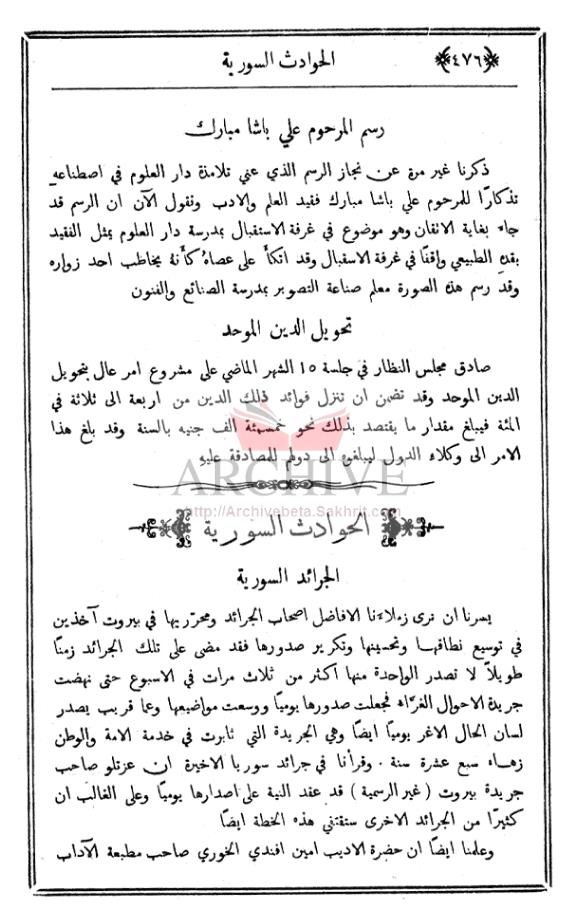 ﴿٤٧٦﴾ الحوادث السورية
رسم المرحوم علي باشا مبارك
ذكرنا غير مرة عن نجاز الرسم الذي عني تلامذة دار العلوم في اصطناعه
تذكارًا للمرحوم علي باشا مبارك فقيد العلم والادب ونقول الآن ان الرسم قد
جاء بغاية الاتقان وهو موضوع في غرفة الاستقبال بمدرسة دار العلوم يمثل الفقيد
بقده الطبيعي واقفًا في غرفة الاسقبال وقد اتكأ على عصاهُ كأنهُ يخاطب احد زواره
وقد رسم هذه الصورة معلم صناعة التصوير بمدرسة الصنائع والفنون
تحويل الدين الموحد
صادق مجلس النظار في جلسة ١٥ الشهر الماضي على مشروع امر عال بتحويل
الدين الموحد وقد تضمن ان تنزل فوائد ذلك الدين من اربعة الى ثلاثة في
المئة فيبلغ مقدار ما يقتصد بذلك نحو خمسمئة الف جنيه بالسنة وقد بلغ هذا
الامر الى وكلاء الدول ليبلغوه الى دولهم للمصادقة عليه
ARCHIVE
http://Archivebeta.Sakhrit.com
الحوادث السورية
الجرائد السورية
يسرنا ان نرى زملاءنا الافاضل اصحاب الجرائد ومحرّريها في بيروت آخذين
في توسيع نطاقها وتحسينها وتكرير صدورها فقد مضى على تلك الجرائد زمنًا
طويلاً لا تصدر الواحدة منها اكثر من ثلاث مرات في الاسبوع حتى نهضت
جريدة الاحوال الغرّاء فجعلت صدورها يوميًا ووسعت مواضيعها وعما قريب يصدر
لسان الحال الاغر يوميًا ايضًا وهي الجريدة التي ثابرت في خدمة الامة والوطن
زهاء سبع عشرة سنة . وقرأنا في جرائد سوريا الاخيرة ان عزتلو صاحب
جريدة بيروت ( غير الرسمية ) قد عقد النية على اصدارها يوميًا وعلى الغالب ان
كثيرًا من الجرائد الاخرى ستقتفي هذه الخطة ايضًا
وعلمنا ايضًا ان حضرة الاديب امين افندي الخوري صاحب مطبعة الآداب